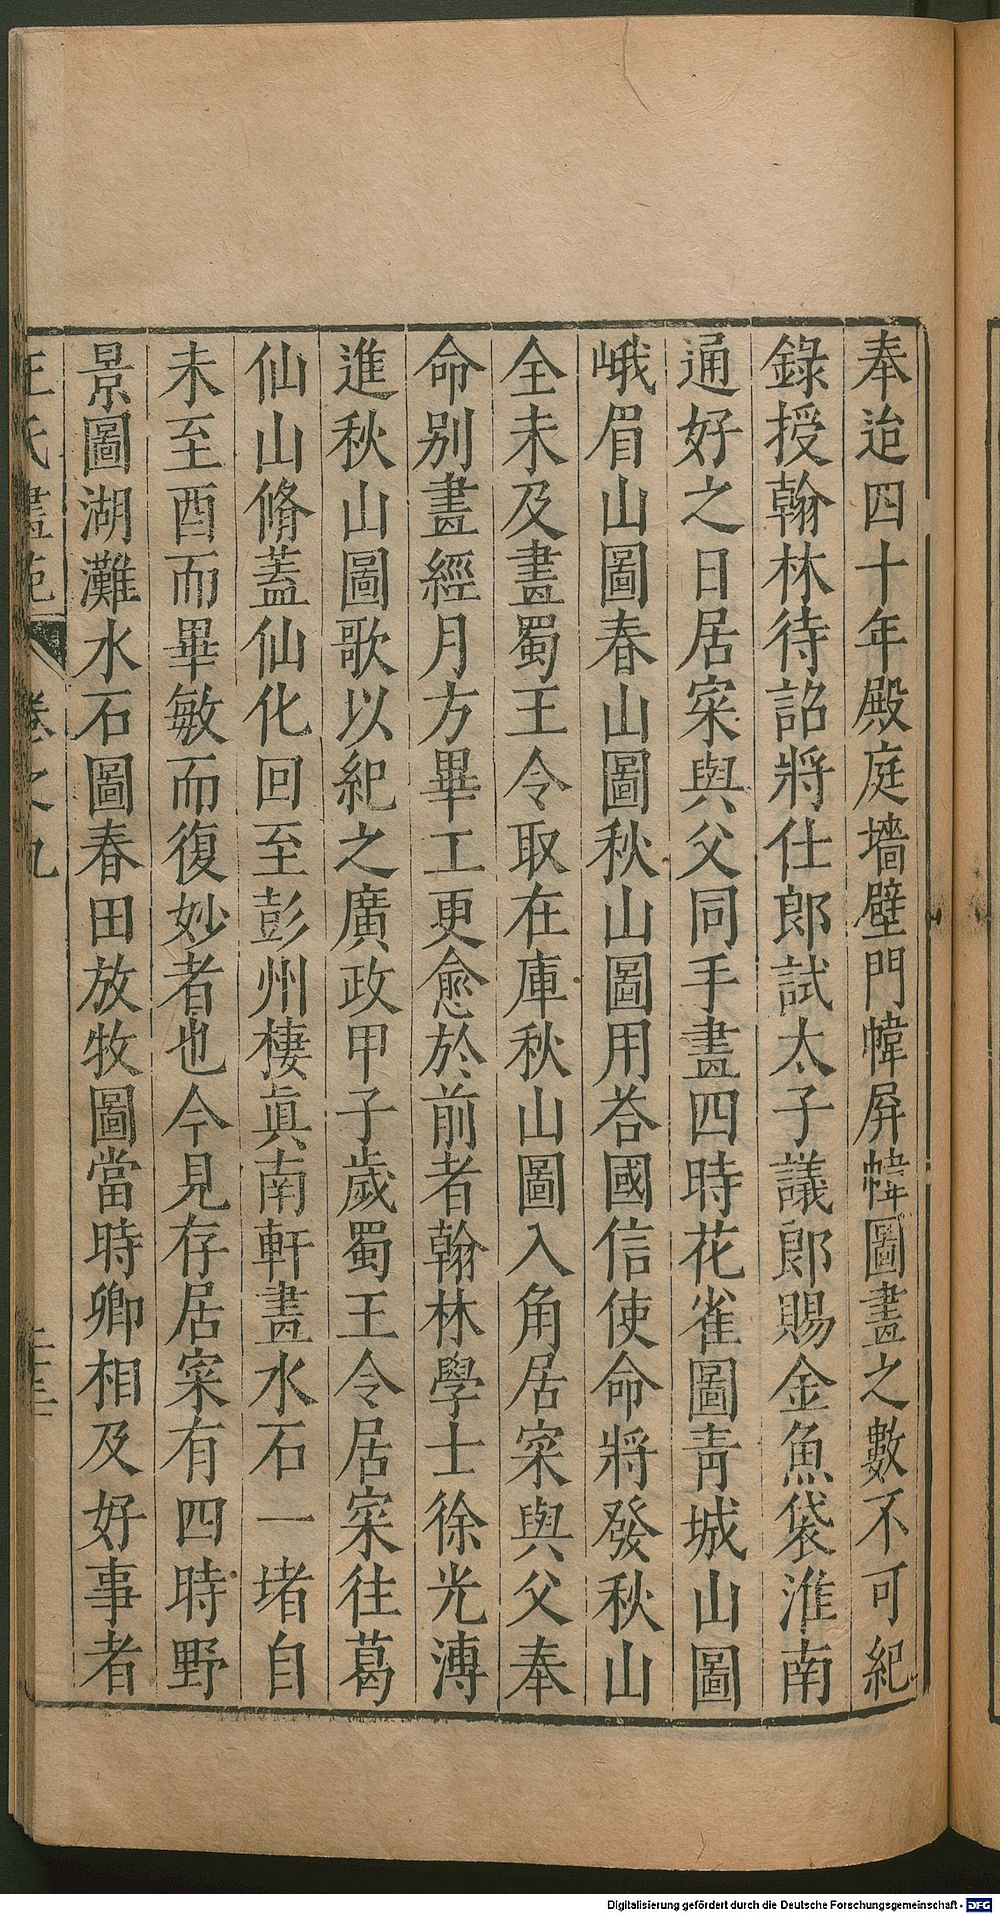 奉迨四十年殿庭墻壁門幃屏幃圖畫之數不可紀
錄授翰林待詔將仕郎試太子議郎賜金魚袋淮南
通好之日居寀與父同手畫四時花雀圖青城山圖
峨眉山圖春山圖秋山圖用荅國信使命將發秋山
全未及畫蜀王令取在庫秋山圖入角居寀與父奉
命別畫經月方畢工更愈於前者翰林學士徐光溥
進秋山圖歌以紀之廣政甲子歲蜀王令居寀往葛
仙山脩蓋仙化回至彭州棲眞南軒畫水石一堵自
未至酉而畢敏而復妙者也今見存居寀有四時野
景圖湖灘水石圖春田放牧圖當時卿相及好事者
王氏畫苑 卷之九
Digitalisierung gefördert durch die Deutsche Forschungsgemeinschaft - DFG